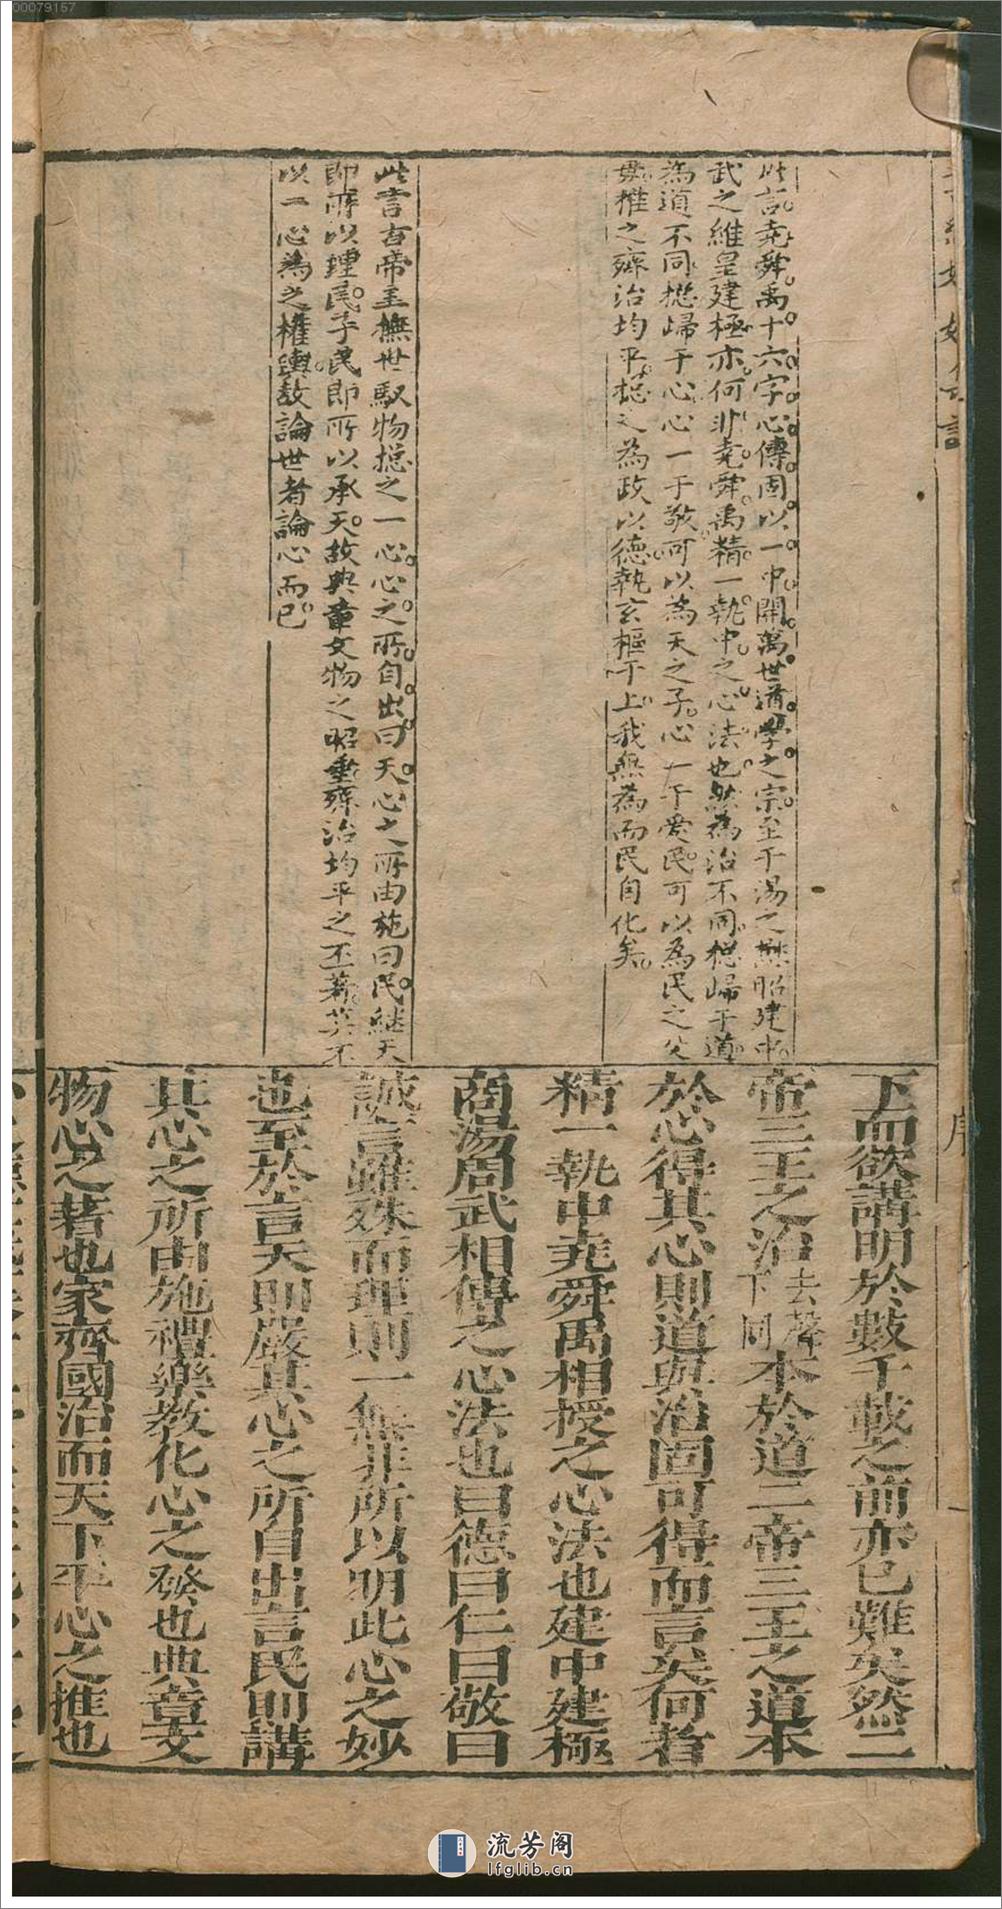 00079157
此言堯舜禹十六字心傳固以一中開萬世道學之宗至于湯之懋昭建中
武之維皇建極亦何非堯舜禹精一執中之心法也然為治不同揔歸于道
為道不同揔歸于心心一于敬可以為天之子心一于愛民可以為民之父
母推之齊治均平揔之為政以德執玄樞于上我無為而民自化矣
此言古帝王撫世馭物揔之一心心之所自出曰天心之所由施曰民継天
即所以理民子民即所以承天故典章文物之昭垂齊治均平之丕著莫不
以一心為之權輿故論世者論心而已
序
下而欲講明於數千載之前亦已難矣然二
帝三王之治去聲下同本於道二帝三王之道本
於心得其心則道與治固可得而言矣何者
精一執中堯舜禹相授之心法也建中建極
商湯周武相傳之心法也曰德曰仁曰敬曰
誠言雖殊而理則一無非所以明此心之妙
也至於言天則嚴其心之所自出言民則講
其心之所由施禮樂教化心之發也典章文
物心之著也家齊國治而天下平心之推也
流芳阁
lfglib.cn